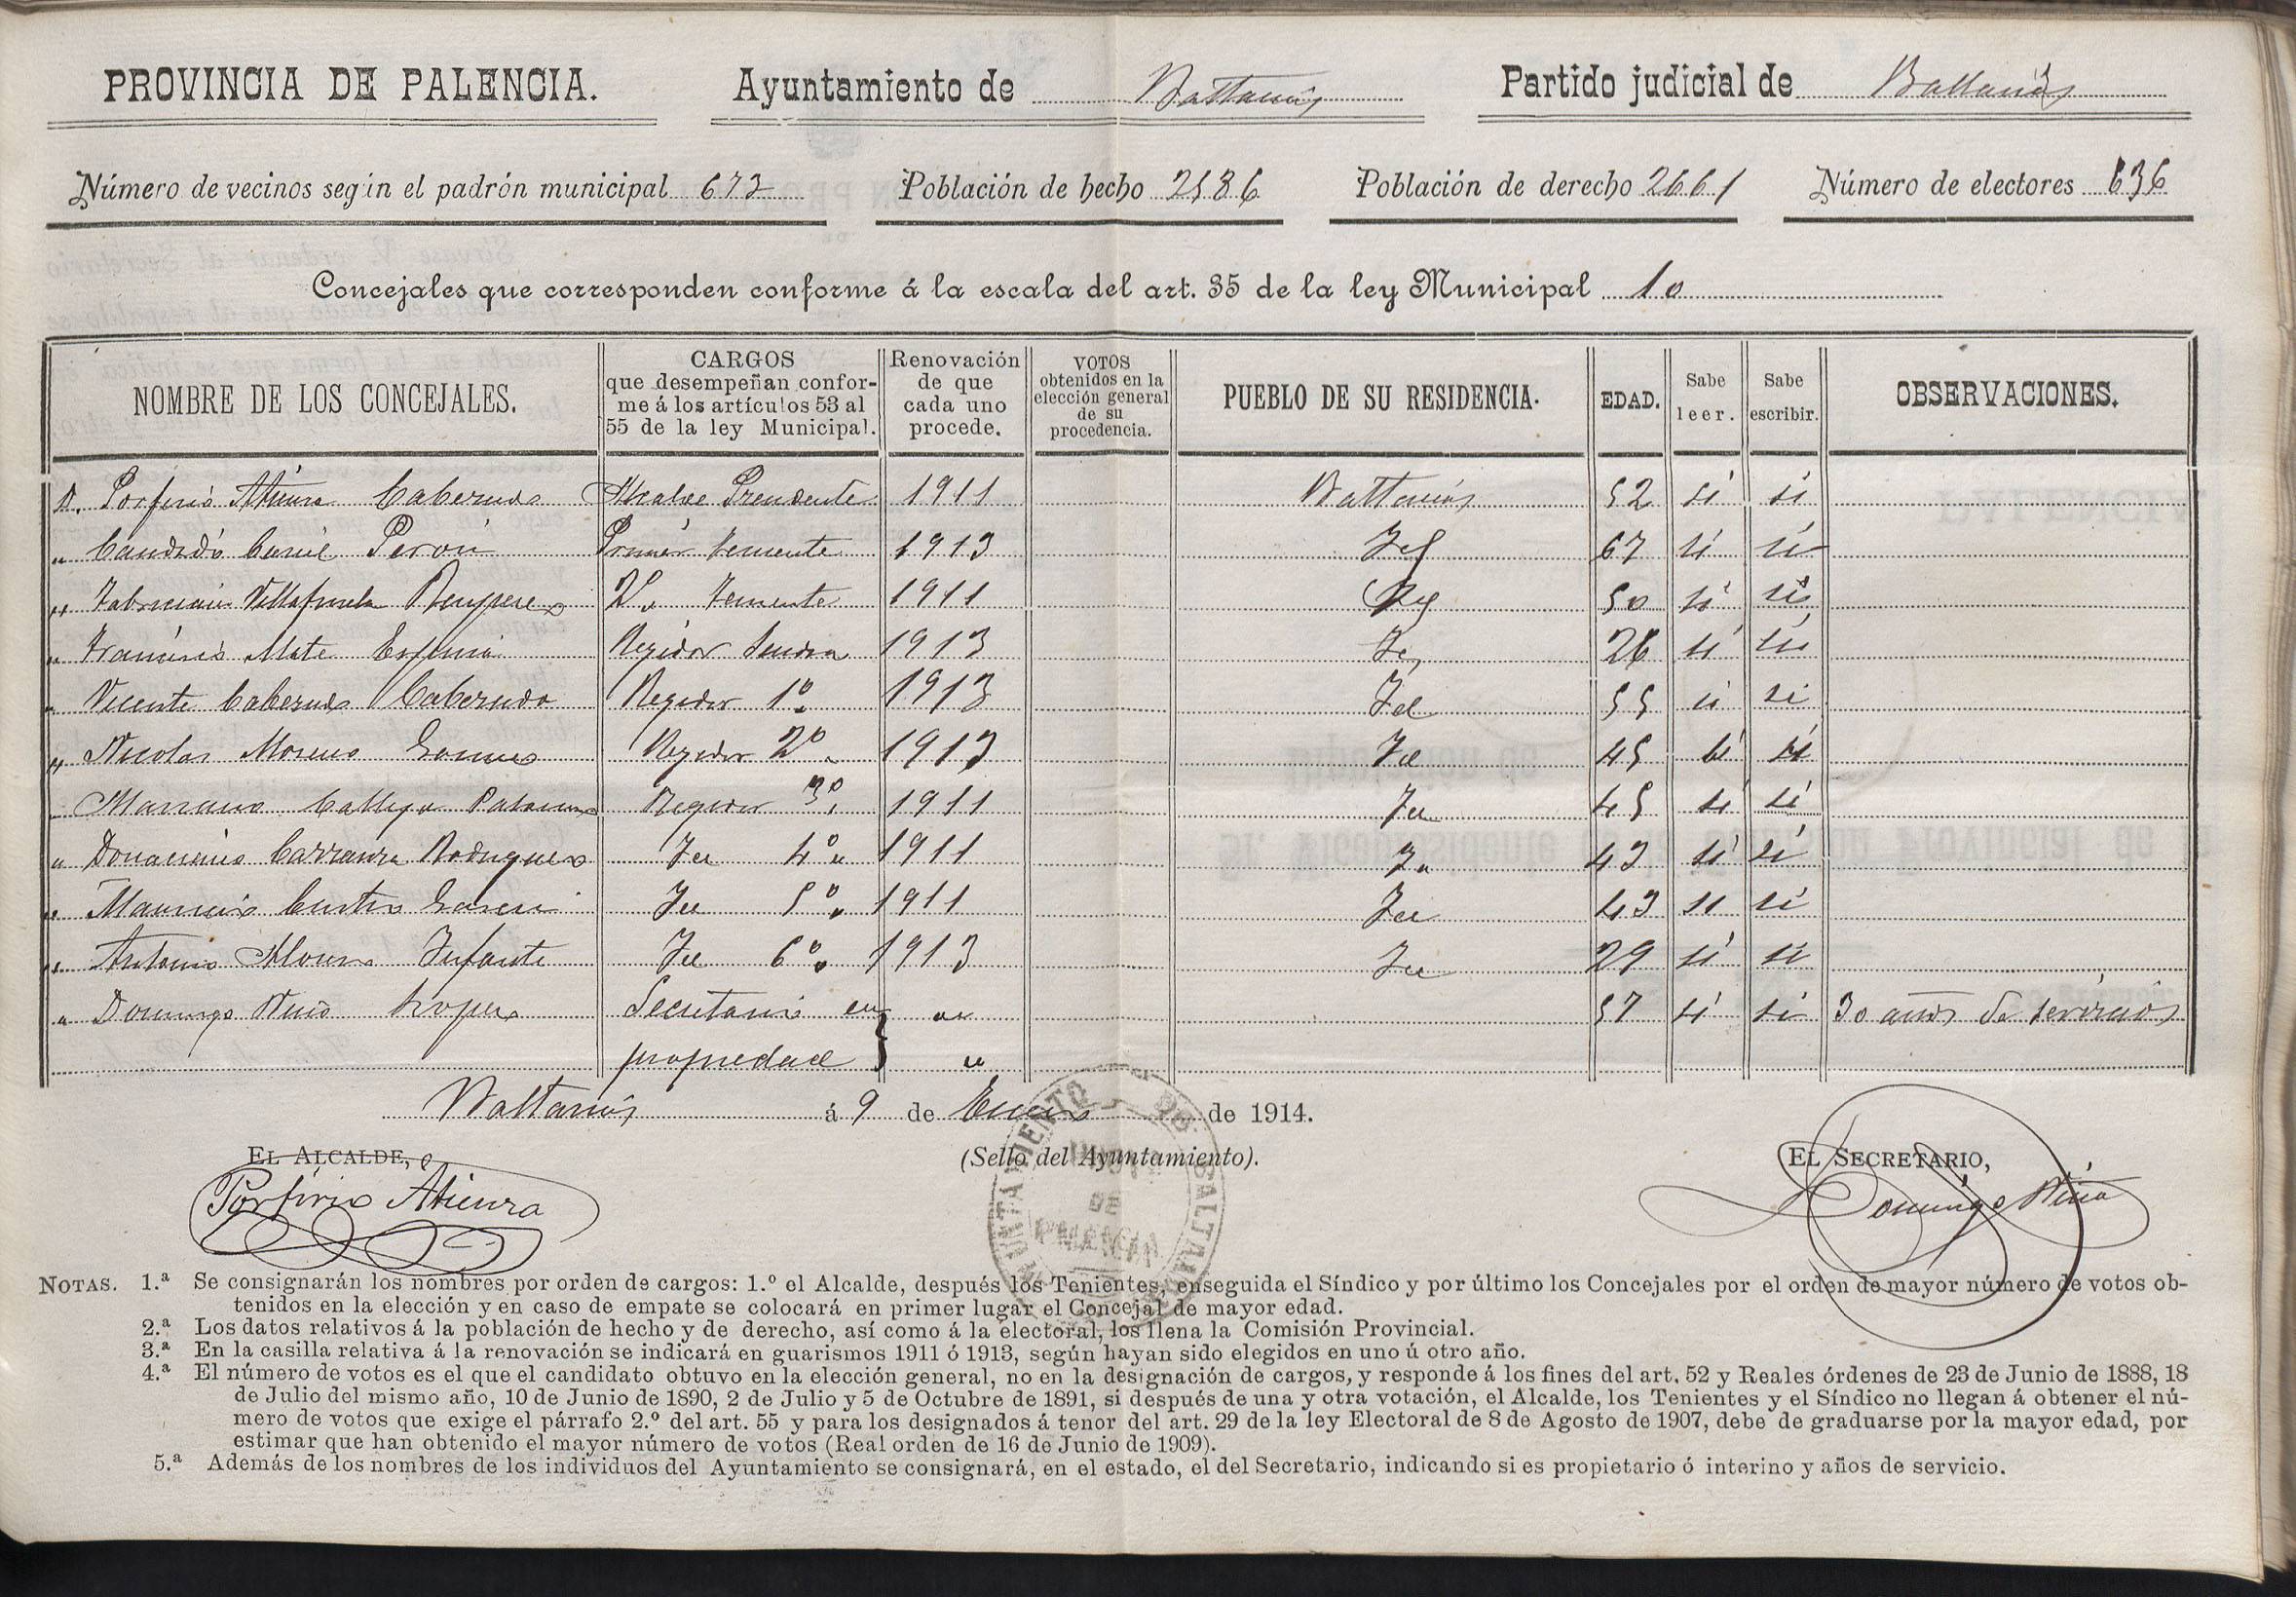 PROVINCIA DE PALENCIA. Ayuntamiento de Baltanás Partido judicial de Baltanás
Número de vecinos según el padrón municipal 673 Población de hecho 2586 Población de derecho 2661 Número de electores 636
Concejales que corresponden conforme á la escala del art. 35 de la ley Municipal 10
NOMBRE DE LOS CONCEJALES. CARGOS que desempeñan conforme á los artículos 53 al 55 de la ley Municipal. Renovación de que cada uno procede. VOTOS obtenidos en la elección general de su procedencia. PUEBLO DE SU RESIDENCIA. EDAD. Sabe leer. Sabe escribir. OBSERVACIONES.
D. Porfirio Atienza Cabezudo Alcalde Presidente 1911 Baltanás 52 si si
" Candido Curiel Peron Primer Teniente 1913 Id 67 si si
" Villafruela 2º Teniente 1911 Id 50 si si
" Francisco Mate Espina Regidor Sindico 1913 Id 26 si si
" Vicente Cabezudo Cabezudo Regidor 1º 1913 Id 55 si si
" Nicolas Moreno Gomez Regidor 2º 1913 Id 45 si si
" Mariano Calleja Regidor 3º 1911 Id 45 si si
" Donaciano Carranza Rodriguez Id 4º " 1911 Id 43 si si
" Mauricio Garcia Id 5º " 1911 Id 43 si si
" Antonio Alonso Infante Id 6º " 1913 Id 29 si si
" Domingo Niño Secretario en " 57 si si 30 años de servicios
propiedad "
Baltanás á 9 de Enero de 1914.
EL ALCALDE, (Sello del Ayuntamiento). EL SECRETARIO,
Porfirio Atienza Domingo Niño
NOTAS. 1.ª Se consignarán los nombres por orden de cargos: 1.º el Alcalde, después los Tenientes, enseguida el Síndico y por último los Concejales por el orden de mayor número de votos ob-
tenidos en la elección y en caso de empate se colocará en primer lugar el Concejal de mayor edad.
2.ª Los datos relativos á la población de hecho y de derecho, así como á la electoral, los llena la Comisión Provincial.
3.ª En la casilla relativa á la renovación se indicará en guarismos 1911 ó 1913, según hayan sido elegidos en uno ú otro año.
4.ª El número de votos es el que el candidato obtuvo en la elección general, no en la designación de cargos, y responde á los fines del art. 52 y Reales órdenes de 23 de Junio de 1888, 18
de Julio del mismo año, 10 de Junio de 1890, 2 de Julio y 5 de Octubre de 1891, si después de una y otra votación, el Alcalde, los Tenientes y el Síndico no llegan á obtener el nú-
mero de votos que exige el párrafo 2.º del art. 55 y para los designados á tenor del art. 29 de la ley Electoral de 8 de Agosto de 1907, debe de graduarse por la mayor edad, por
estimar que han obtenido el mayor número de votos (Real orden de 16 de Junio de 1909).
5.ª Además de los nombres de los individuos del Ayuntamiento se consignará, en el estado, el del Secretario, indicando si es propietario ó interino y años de servicio.